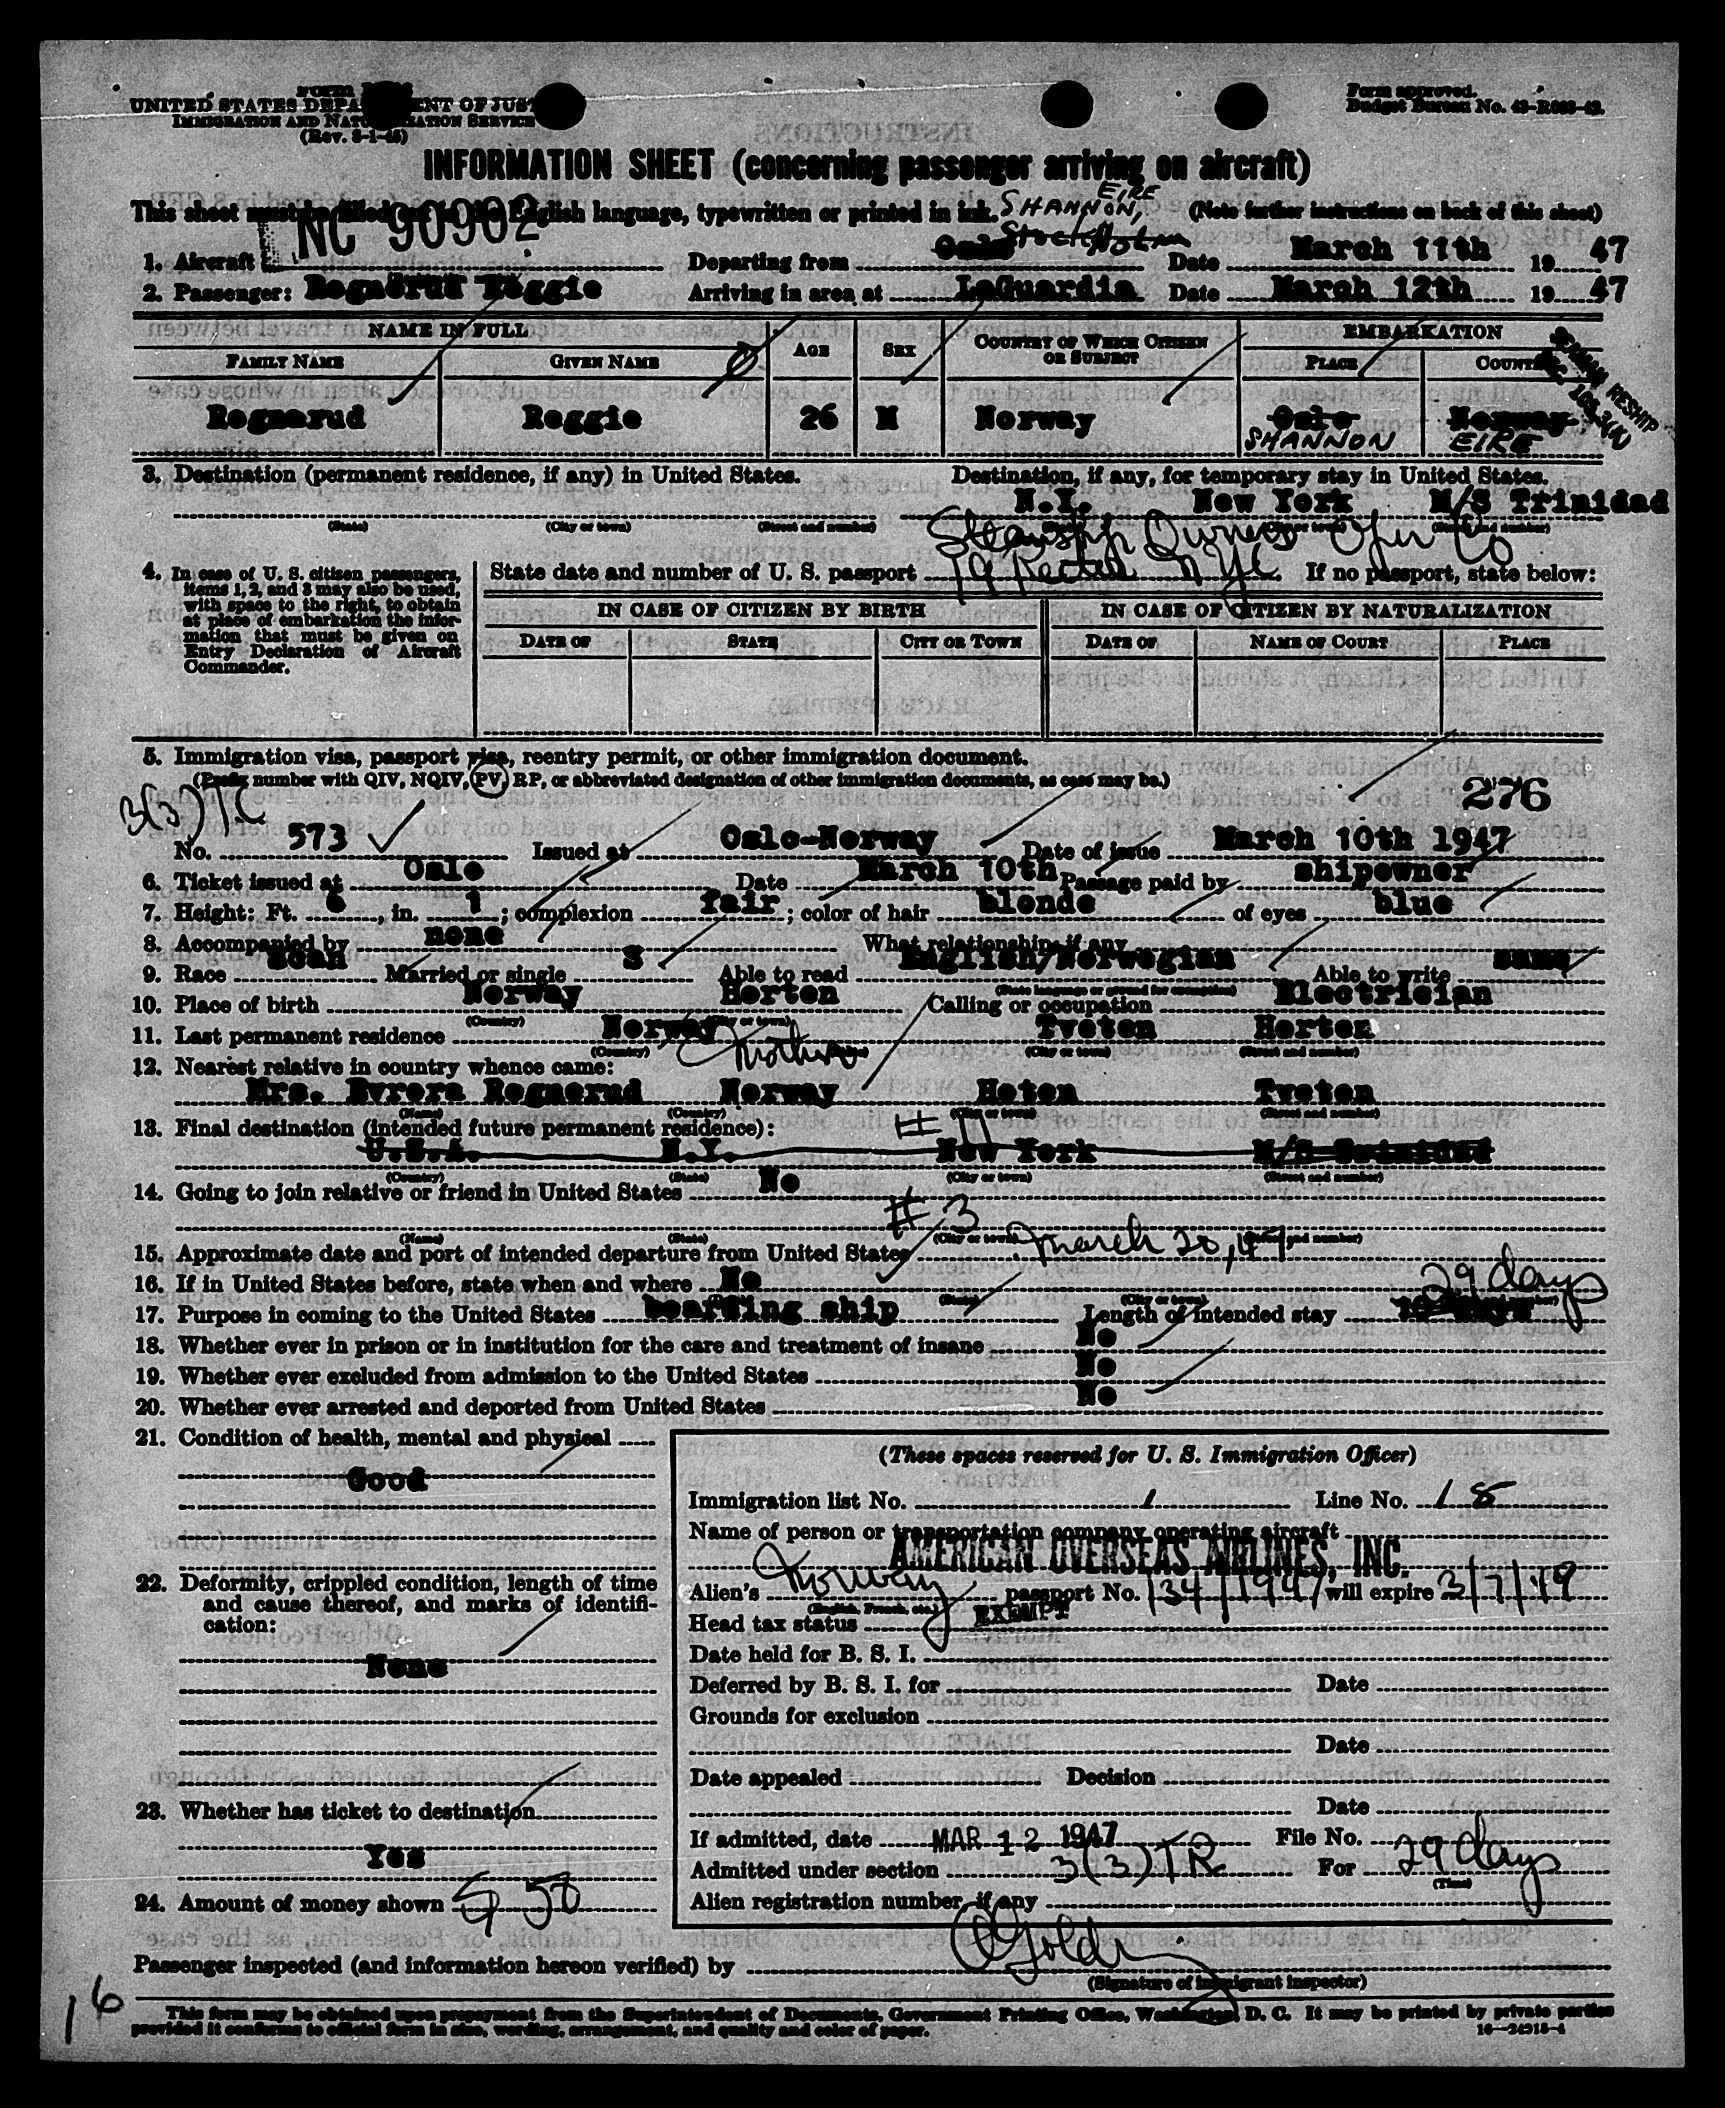 UNITED STATES DEPARTMENT OF JUSTICE
IMMIGRATION AND NATURALIZATION SERVICE
(Rev. 8-1-45)
Form approved.
Budget Bureau No. 43-R083-42.
INFORMATION SHEET (concerning passenger arriving on aircraft)
EIRE
This sheet must be filled out in the English language, typewritten or printed in ink. SHANNON, (Note further instructions on back of this sheet)
1. Aircraft NC 90902 Departing from Oslo Stockholm Date March 11th 1947
2. Passenger: Regnerud Reggie Arriving in area at LaGuardia Date March 12th 1947
NAME IN FULL AGE SEX COUNTRY OF WHICH CITIZEN OR SUBJECT EMBARKATION
FAMILY NAME GIVEN NAME PLACE COUNTRY
Regnerud Reggie 26 M Norway Oslo Norway
SHANNON EIRE
3. Destination (permanent residence, if any) in United States. Destination, if any, for temporary stay in United States.
N.Y. New York M/S Trinidad
(State) (City or town) (Street and number) (State) (City or town) (Street and number)
Steamship Owners Oper Co
4. In case of U. S. citizen passengers, items 1, 2, and 3 may also be used, with space to the right, to obtain at place of embarkation the information that must be given on Entry Declaration of Aircraft Commander.
State date and number of U. S. passport 19 Rector NYC If no passport, state below:
IN CASE OF CITIZEN BY BIRTH IN CASE OF CITIZEN BY NATURALIZATION
DATE OF STATE CITY OR TOWN DATE OF NAME OF COURT PLACE
5. Immigration visa, passport visa, reentry permit, or other immigration document.
(Prefix number with QIV, NQIV, PV, RP, or abbreviated designation of other immigration documents, as case may be.)
276
3(3)TC
No. 573 Issued at Oslo-Norway Date of issue March 10th 1947
6. Ticket issued at Oslo Date March 10th Passage paid by shipowner
7. Height: Ft. 6, in. 1; complexion fair; color of hair blonde of eyes blue
8. Accompanied by none What relationship, if any
9. Race Scan Married or single S Able to read English/Norwegian Able to write same
(State language or ground for exemption)
10. Place of birth Norway Horten Calling or occupation Electrician
(Country) (City or town)
11. Last permanent residence Norway Tveten Horten
(Country) (City or town) (Street and number)
12. Nearest relative in country whence came: mother
Mrs. Evrera Regnerud Norway Hoten Tveten
(Name) (Country) (City or town) (Street and number)
13. Final destination (intended future permanent residence): #11
U.S.A. N.Y. New York M/S Trinidad
(Country) (State) (City or town) (Street and number)
14. Going to join relative or friend in United States No
#3
(Name) (State) (City or town) (Street and number)
15. Approximate date and port of intended departure from United States March 20, 47
16. If in United States before, state when and where No
29 days
17. Purpose in coming to the United States boarding ship Length of intended stay 10 days
18. Whether ever in prison or in institution for the care and treatment of insane No
19. Whether ever excluded from admission to the United States No
20. Whether ever arrested and deported from United States No
21. Condition of health, mental and physical
Good
22. Deformity, crippled condition, length of time and cause thereof, and marks of identification:
None
23. Whether has ticket to destination
Yes
24. Amount of money shown $ 50
(These spaces reserved for U. S. Immigration Officer)
Immigration list No. 1 Line No. 18
Name of person or transportation company operating aircraft
AMERICAN OVERSEAS AIRLINES, INC.
Alien's Norway passport No. 134/1947 will expire 3/7/49
(English, French, etc.)
Head tax status EXEMPT
Date held for B. S. I.
Deferred by B. S. I. for Date
Grounds for exclusion
Date
Date appealed Decision
Date
If admitted, date MAR 12 1947 File No.
Admitted under section 3(3)TR For 29 days
(Time)
Alien registration number, if any
Passenger inspected (and information hereon verified) by
(Signature of immigrant inspector)
16
This form may be obtained upon prepayment from the Superintendent of Documents, Government Printing Office, Washington, D. C. It may be printed by private parties
provided it conforms to official form in size, wording, arrangement, and quality and color of paper.
16—24915-4